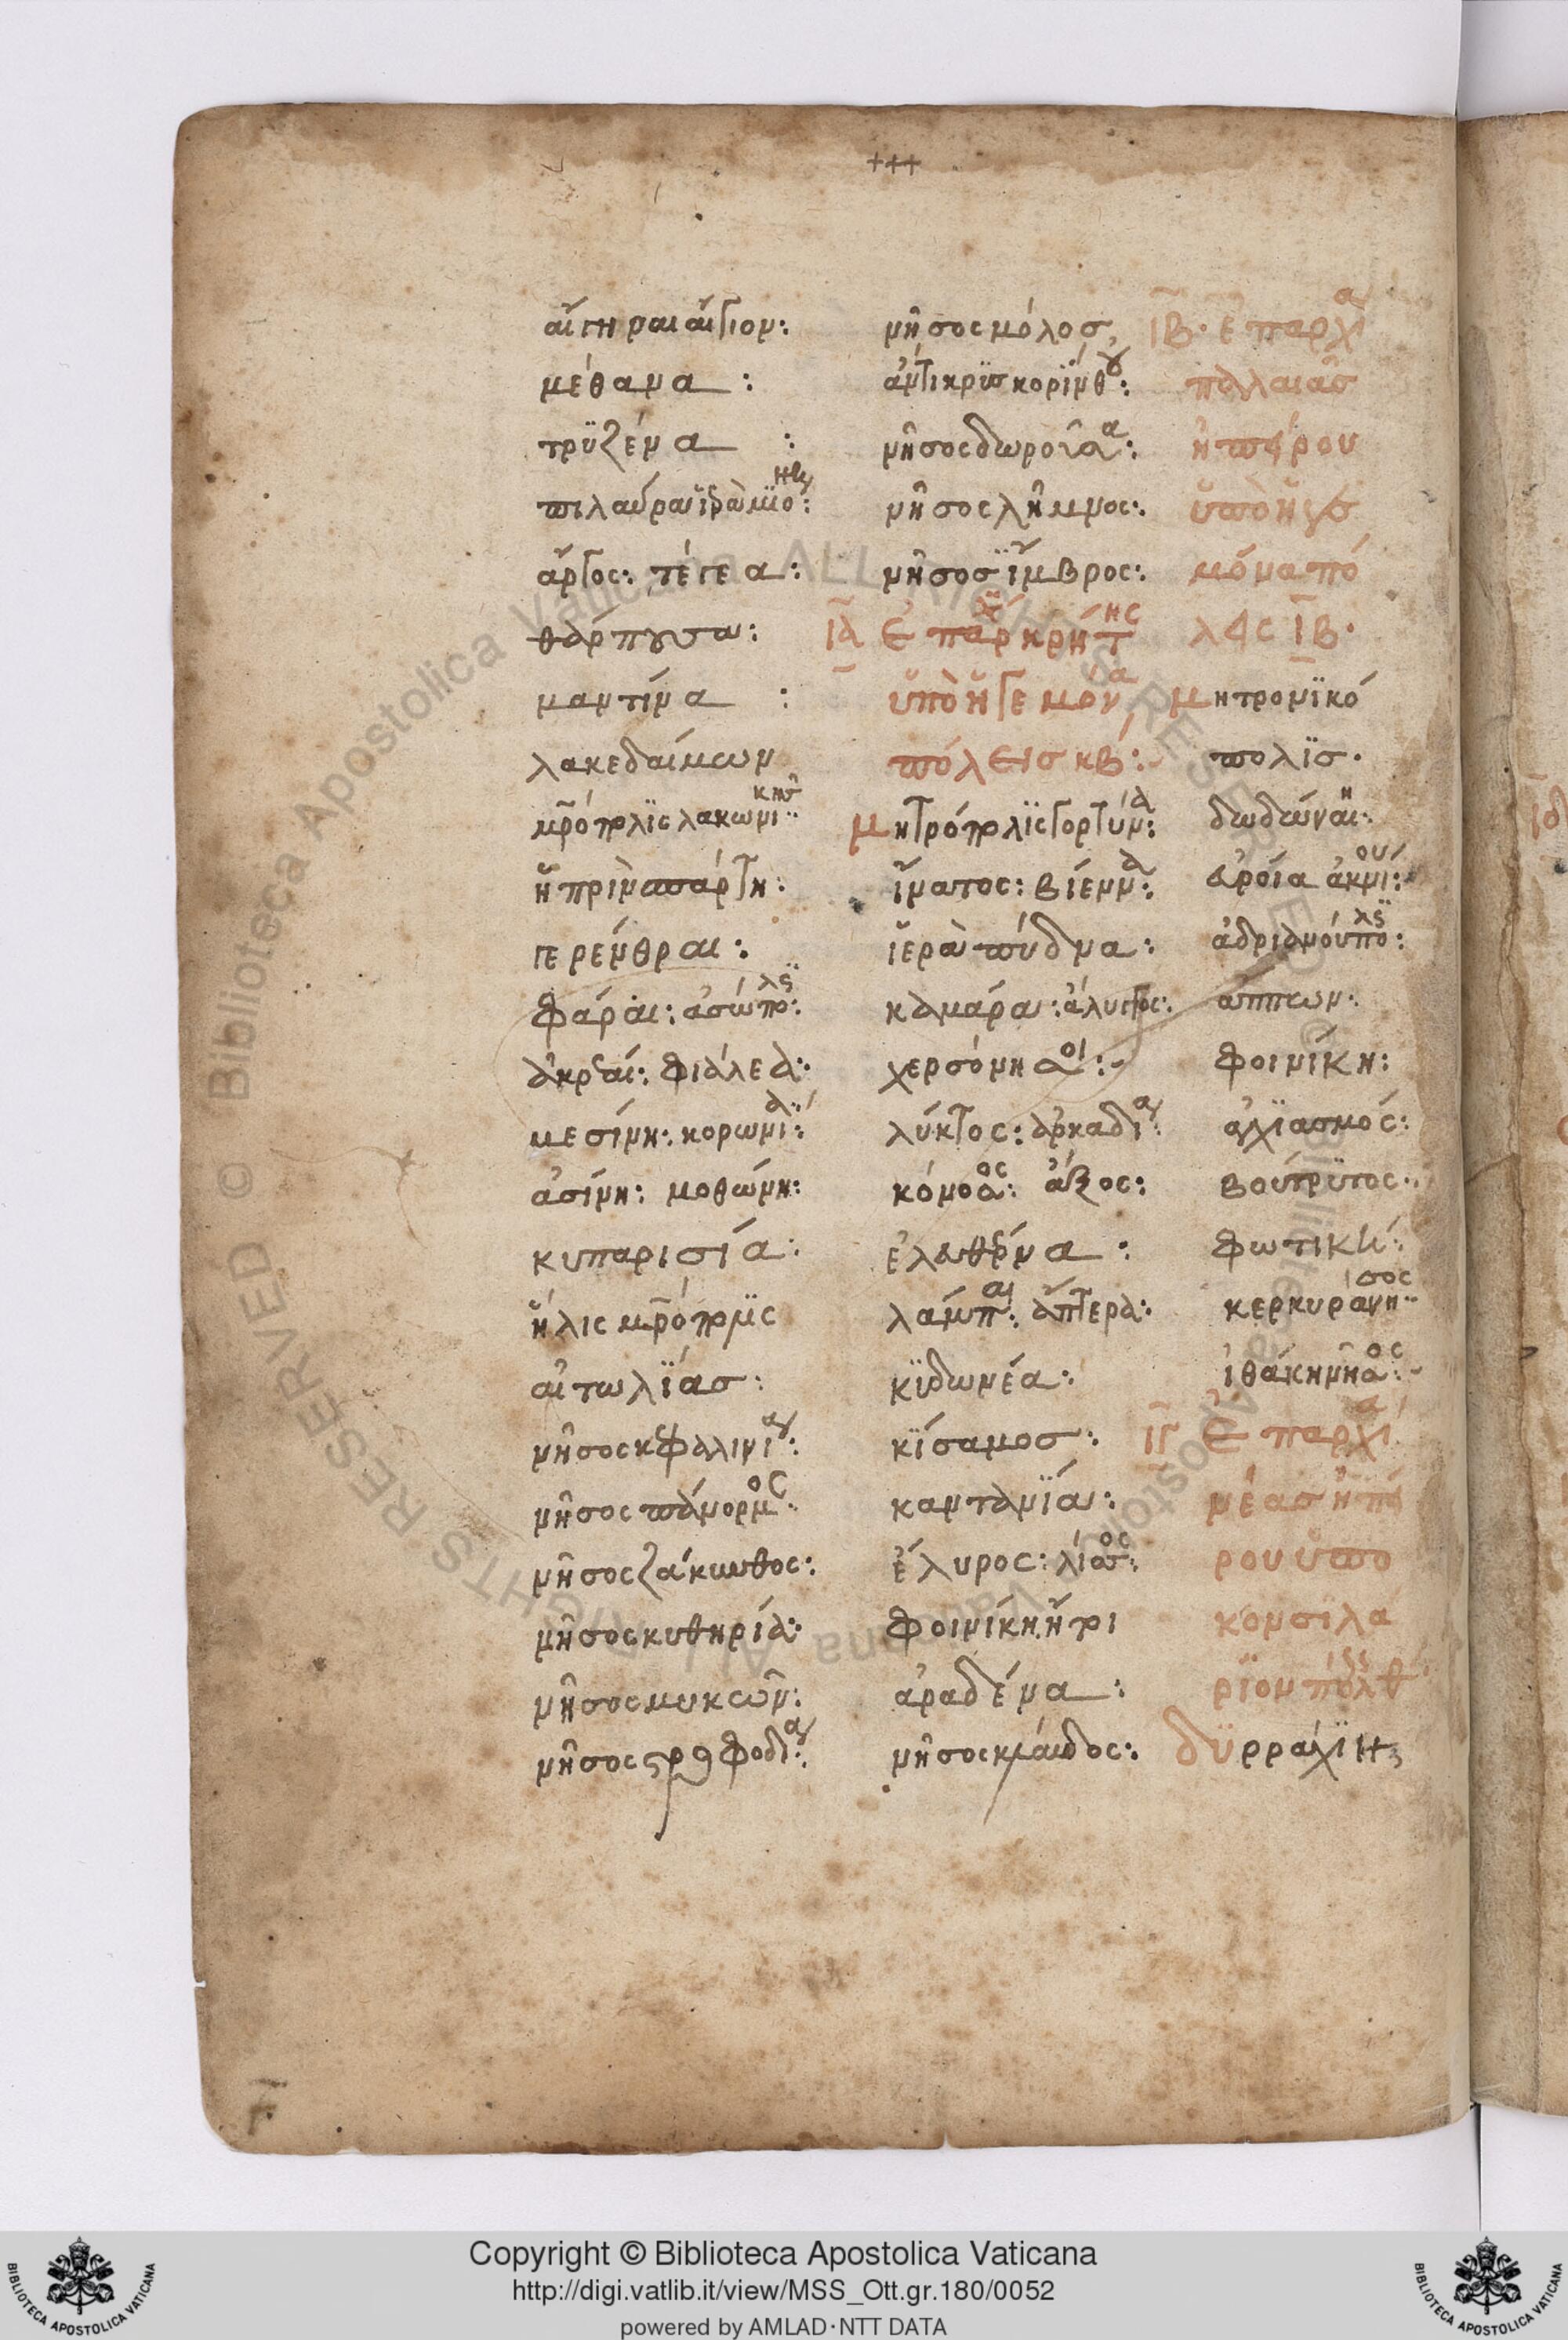 +++
αἴγηραι αἴγιον:
μέθανα:
τρϋζένα:
πιλαύρα
ἄργος: τέγεα:
θάρπουσα:
μαντίνα:
λακεδαίμων
μρ̄όπολϊς λακωνικησ
ἡ πρὶν σπάρτη:
γερένθραι:
φάραι: ἀσώπολς:
ἀκρεαί: φιάλεα:
μεσίνη: κορωνϊα:
ἀσίνη: μοθώνη:
κυπαρισία:
ἤλις μρ̄όπολϊς
αἰτωλϊάσ:
νῆσος κεφαλινια:
νῆσος πάνορμος:
νῆσος ζάκυνθος:
νῆσος κυθηρία:
νῆσος μυκων:
νῆσος
νῆσος μόλοσ,
ἀντικρϋσ κορϊνθου:
νῆσος δωροῦσα:
νῆσος λῆμνος:
νῆσοσ ἴμβρος:
ῙᾹ ἐπαρχ κρήτης
ὑπὸ ἡγεμόνα
πόλεισ κβ:
μητρόπολϊς γορτύνα:
ἴνατος: βίεννα:
ἱερὰ πύδνα:
καμάρα: ἄλυγγος:
χερσόνησοι:
λύκτος: ἀρκαδια:
κόνοσος: ἄξος:
ἐλευθέρνα:
λάμπαι: ἄπτερα:
κϊδωνέα:
κίσαμοσ:
καντανϊά:
ἔλυρος: λίσος:
φοινίκη ἤτοι
ἀραδένα:
νῆσος κλαύδος:
ῙΒ· ἐπαρχία
παλλαιᾶσ
ἠπείρου
ὑπὸ ἡγε
μόνα πό
λεις ῙΒ·
μητρονϊκό
πολϊσ·
δωδώνη:
εὐροία ἀκνίου:
ἀδριανούπολς:
ἄππων:
φοινίκη:
ἀγχϊασμός:
βούτρϋτος:
φωτική:
κερκυρα νησος
ἰθάκη νῆσος:
ῙΓ ἐπαρχία
νέασ ἠπεί
ρου ὑπο
κονσϊλα
ρϊον πόλς θ
δϋρραχϊ